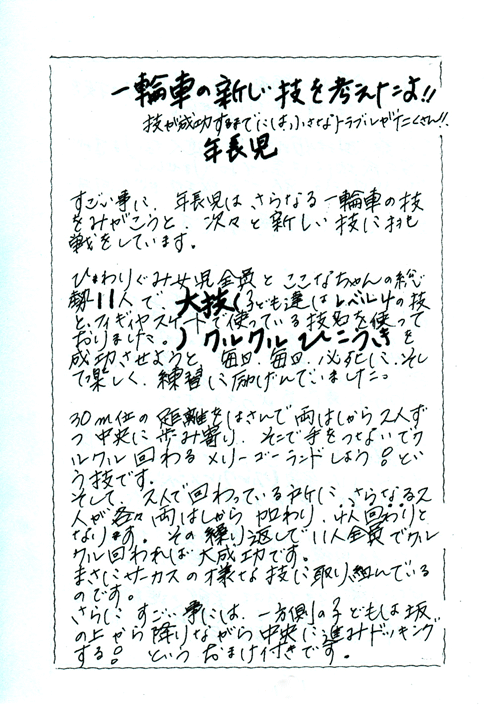 一輪車の新しい技を考えたよ!!
技が成功するまでには,小さなトラブルがたくさん!!
年長児
すごい事に、年長児は さらなる一輪車の技
をみがこうと、次々と新しい技に挑
戦をしています。
ひまわりぐみ女児全員と ここなちゃんの総
勢11人で、大技(子ども達はレベル4の技
と、フィギィヤスケートで使っている技名を使って
おりました。)クルクルひこうきを
成功させようと、毎日、毎日、必死に、そし
て楽しく、練習に励げんでいました。
30m位の距離をはさんで両はしから2人ず
つ中央に歩み寄り、そこで手をつないでク
ルクル回わるメリーゴーランドしよう!とい
う技です。
そして、2人で回わっている所に、さらなる2
人が各々両はしから加わり、4人回わりと
なります。その繰り返しで11人全員でクル
クル回われば大成功です。
まさにサーカスの様な技に取り組んでいる
のです。
さらに すごい事には、一方側の子どもは坂
の上から降りながら中央に進みドッキング
する! という おまけ付きです。